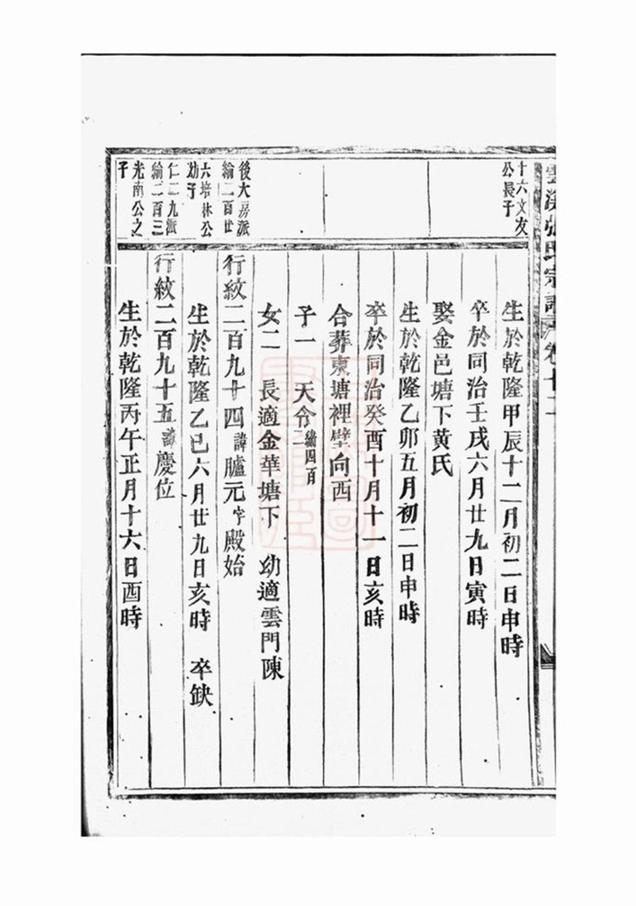 雲溪張氏宗譜 卷十二
十六文友
公長子
生於乾隆甲辰十二月初二日申時
卒於同治壬戌六月廿九日寅時
娶金邑塘下黃氏
生於乾隆乙卯五月初二日申時
卒於同治癸酉十月十一日亥時
合葬東塘裡壁向西
子一 天令 繪四百二
女二 長適金華塘下 幼適雲門陳
後大房派
繪二百廿
六培林公
幼子
行紋二百九十四諱臚元字殿始
生於乾隆乙巳六月廿九日亥時 卒缺
仁二九派
繪二百三
光南公之
子
行紋二百九十五諱慶位
生於乾隆丙午正月十六日酉時